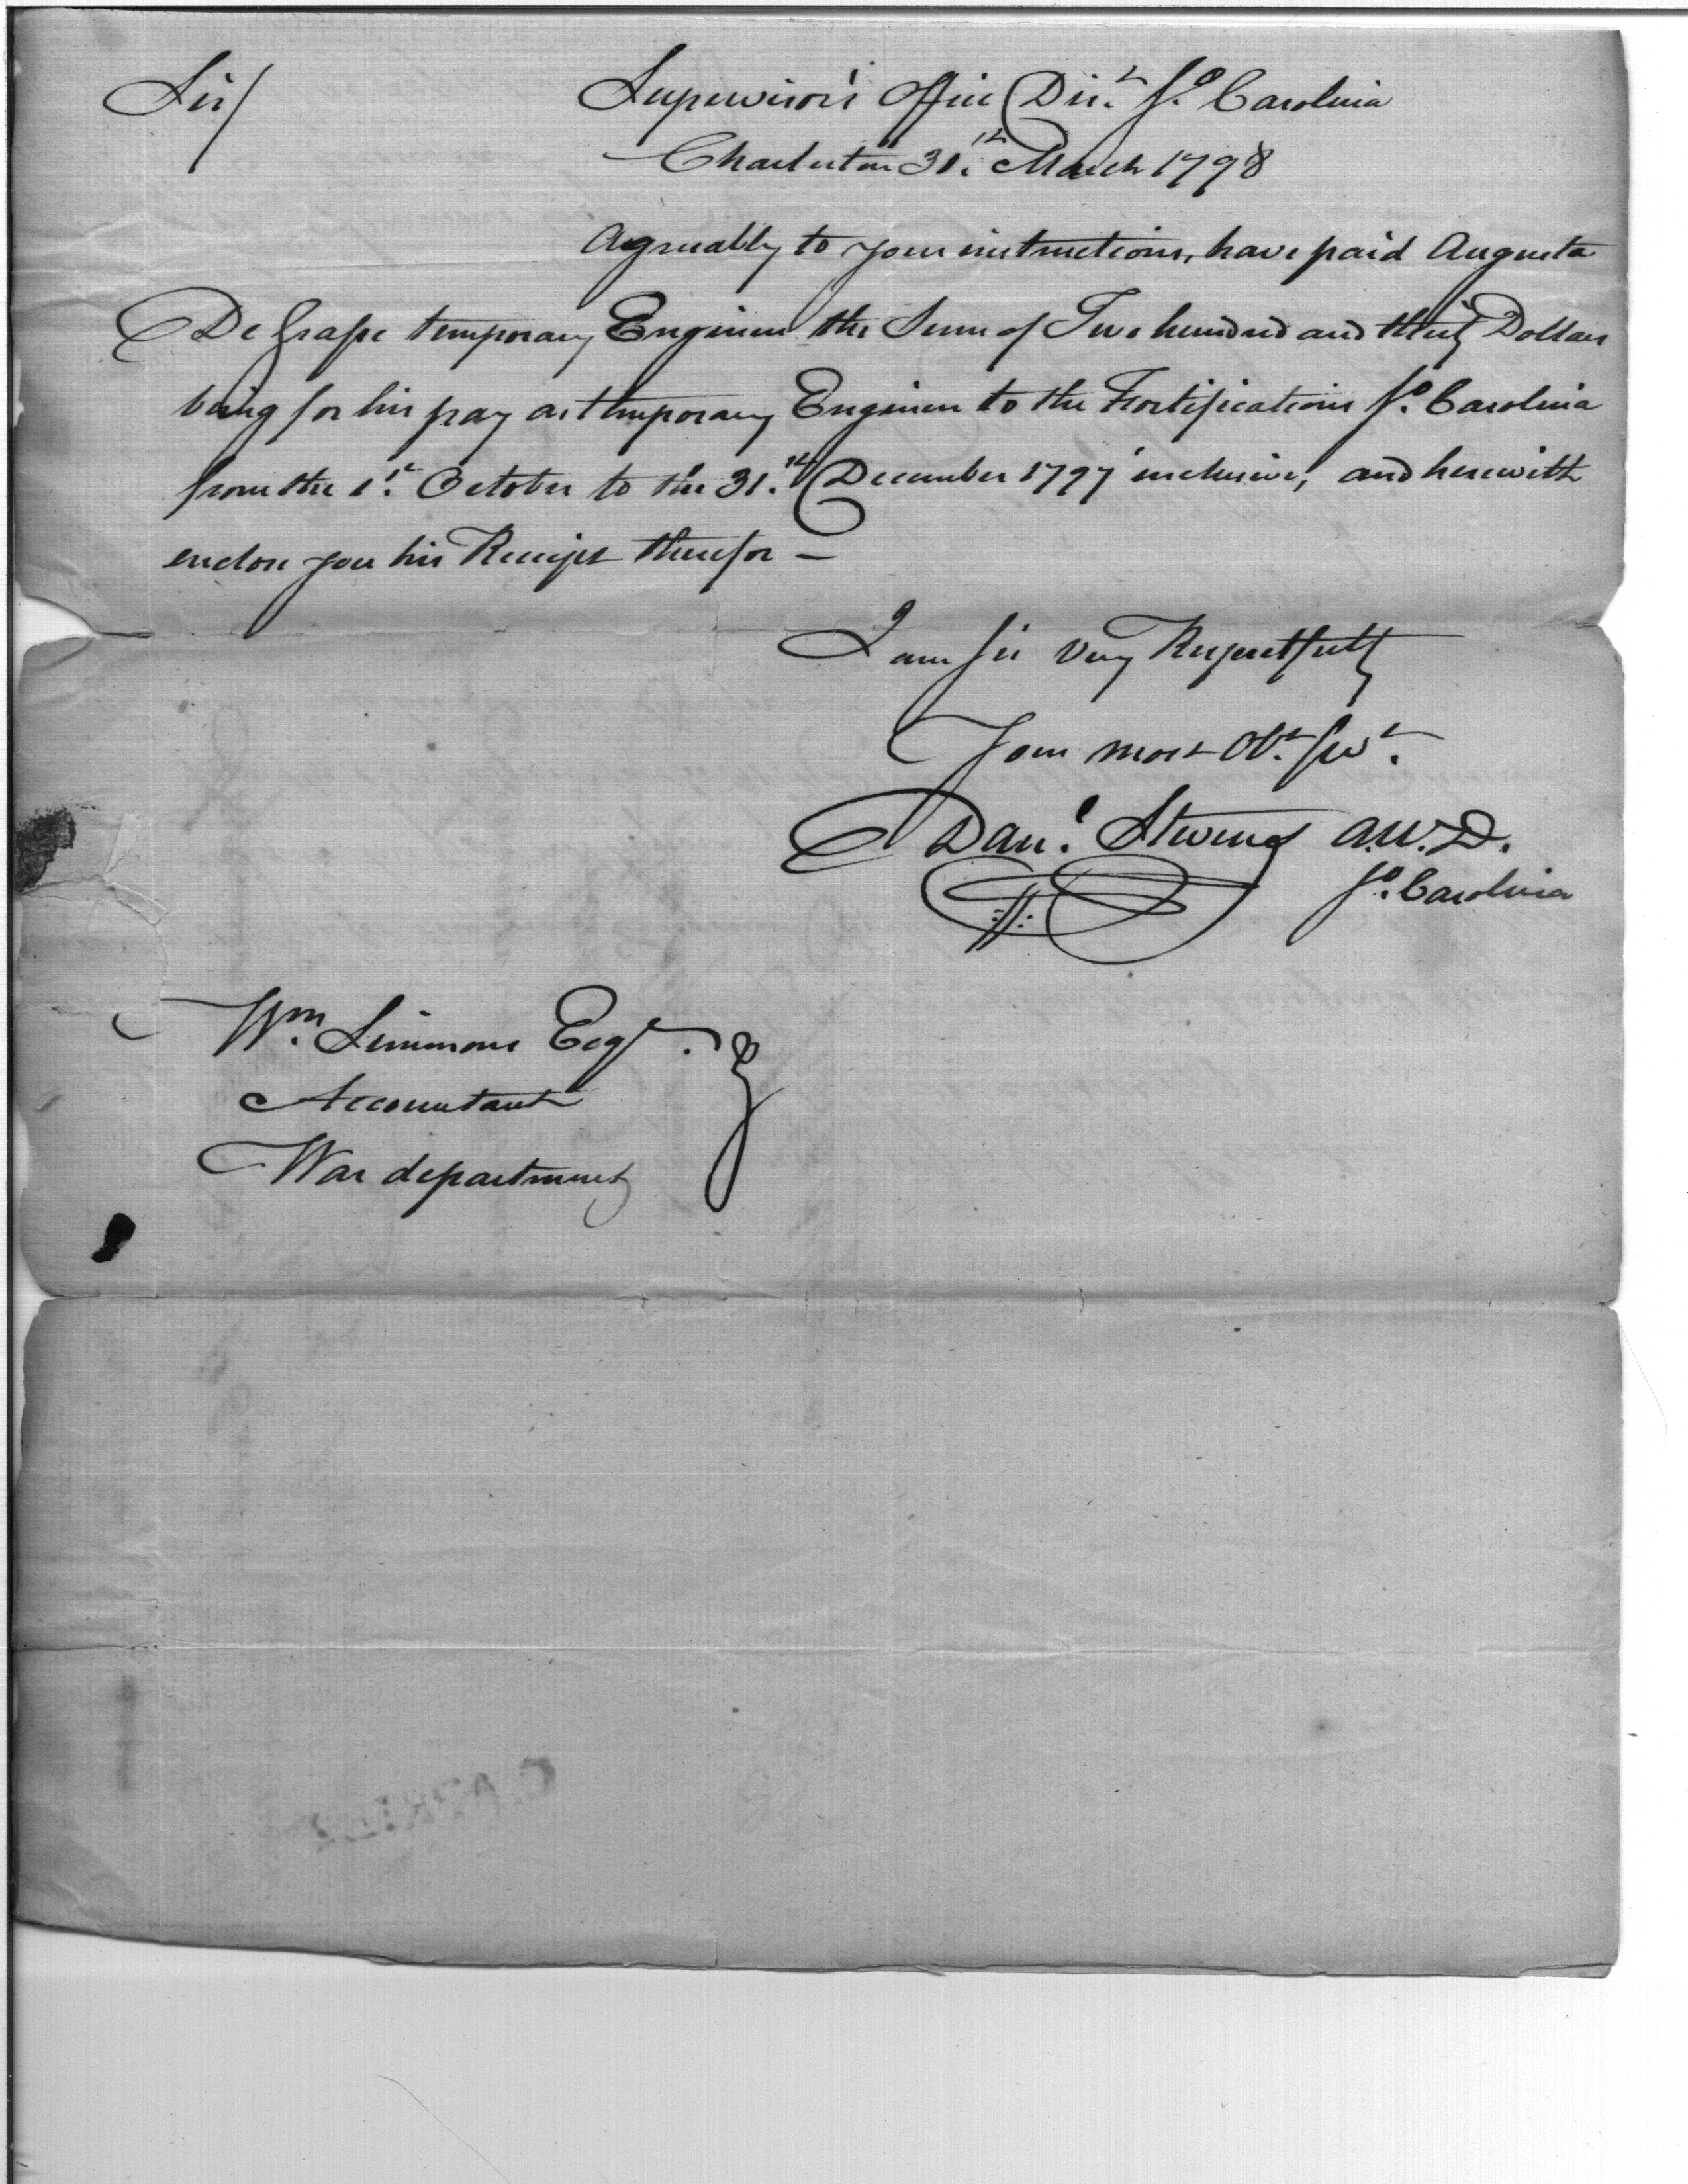 Sir/
Supervisor's Office Dis.t So. Carolina
Charleston 31.th March 1798
Agreeably to your instructions, have paid Augusta
De Grasse temporary Engineer the Sum of Two hundred and thirty Dollars
being for his pay as temporary Engineer to the Fortifications So. Carolina
from the 1.st October to the 31.th December 1797 inclusive, and herewith
enclose you his Receipt therefor —
I am Sir Very Respectfully
Your most Obt. Servt.
Danl. Stevens A.W.D.
So. Carolina
Wm. Simmons Esqr.
Accountant
War department